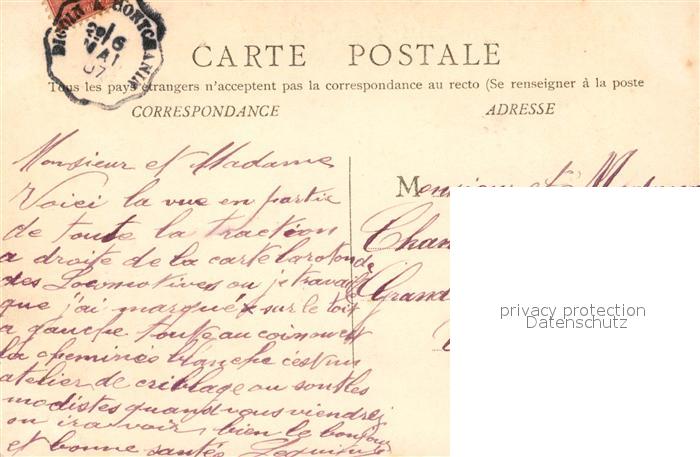 DIGOIN A MONTCHANIN
6
MAI
07
CARTE POSTALE
Tous les pays étrangers n'acceptent pas la correspondance au recto (Se renseigner à la poste
CORRESPONDANCE
ADRESSE
Monsieur et Madame
Voici la vue en partie
de toute la traction
a droite de la carte la rotonde
des Locomotives ou je travaille
que j'ai marqué x sur le toit
a gauche toute au coin
la cheminée blanche c'est un
atelier de criblage ou son les
modistes quand vous viendrez
on ira voir, bien le bonjour
et bonne santée
Monsieur et
Grand
privacy protection
Datenschutz